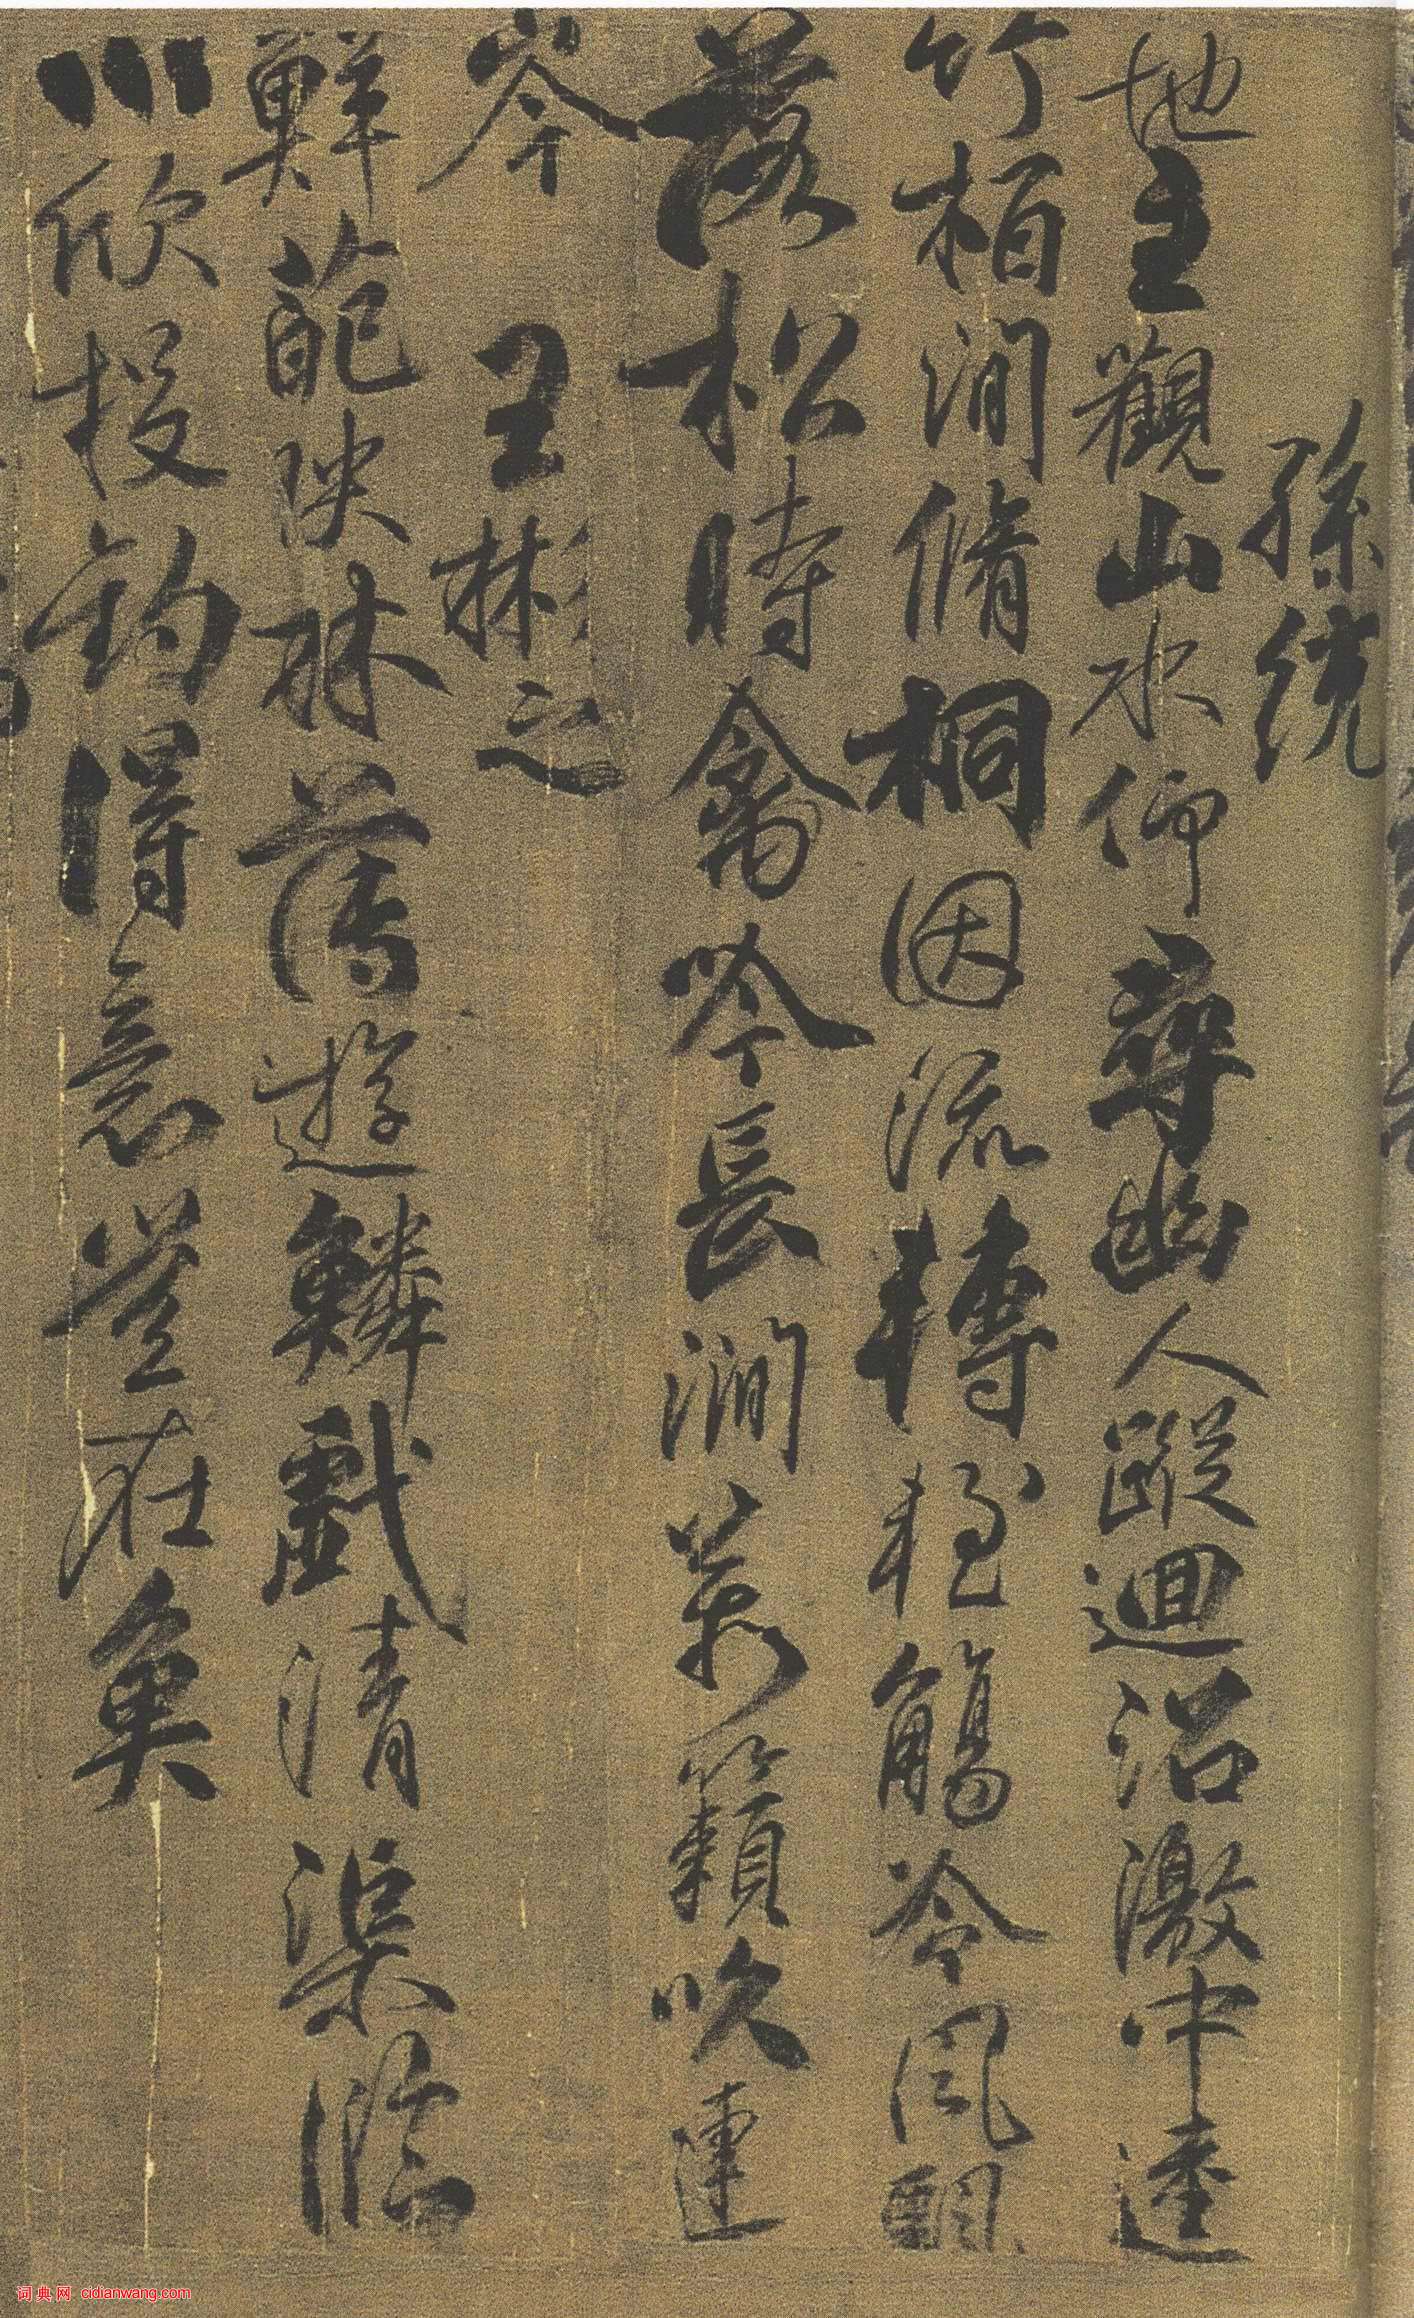 孫統
地主觀山水仰尋幽人蹤迴沼激中逵
竹柏澗脩桐因流轉輕觴冷風飄
落松時禽吟長澗萬籟吹連
岑
王彬之
鮮葩映林薄遊鱗戲清渠臨
川欣投釣得意豈在魚
词典网 cidianwang.com